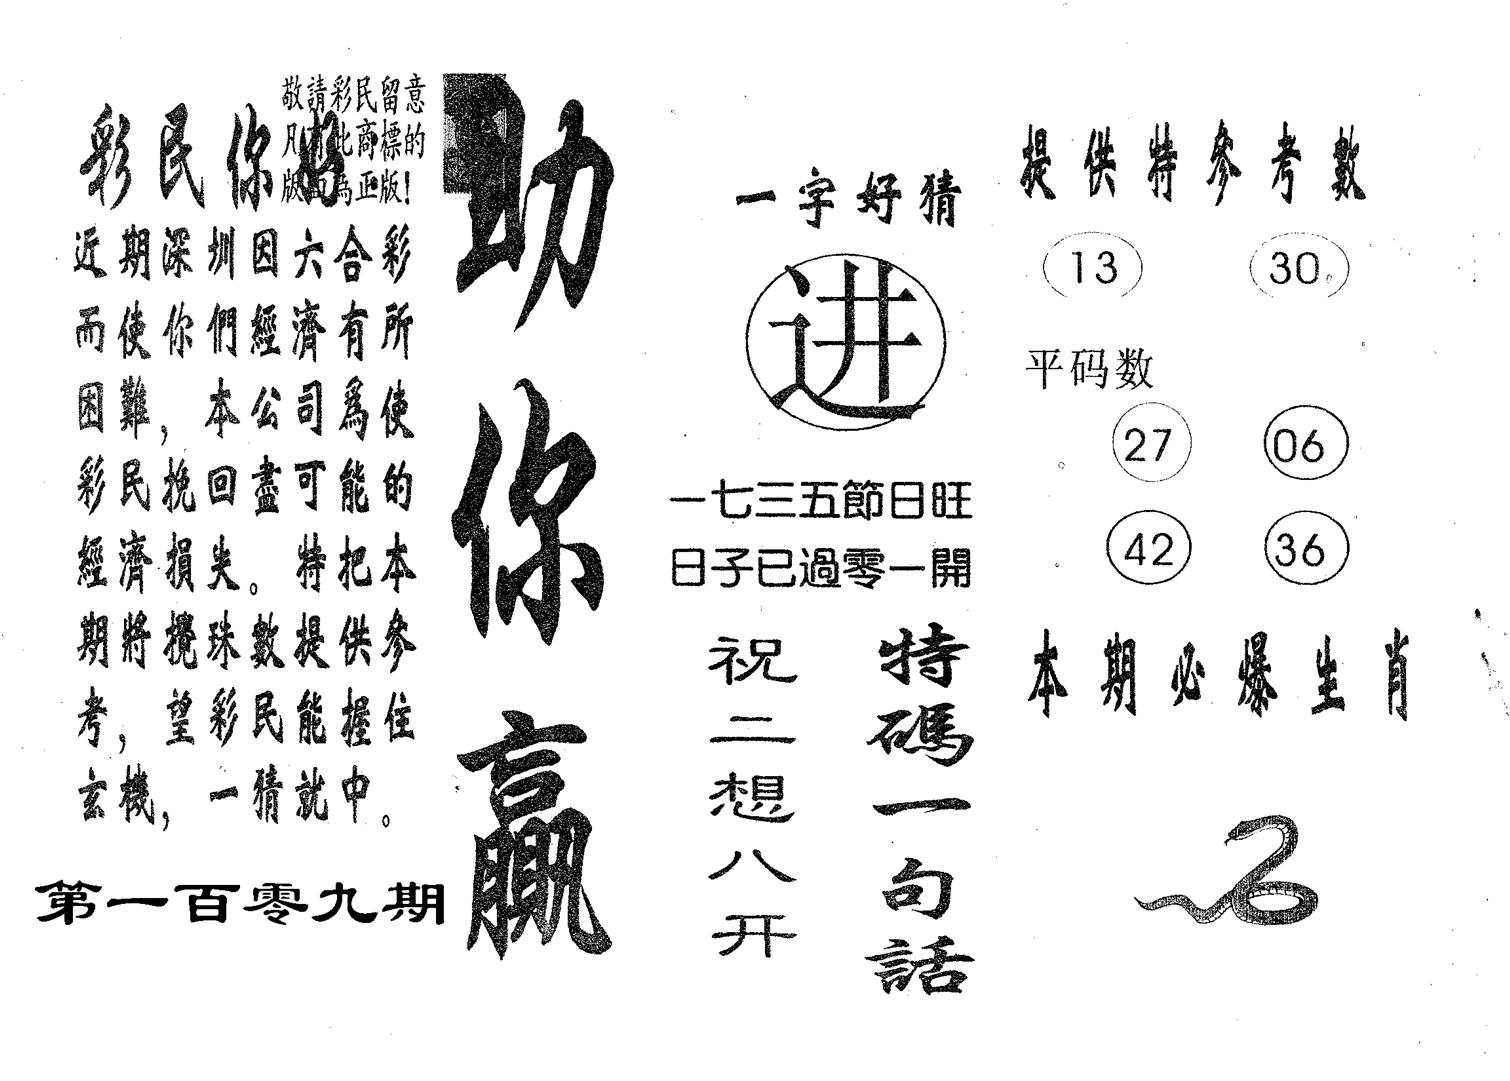 敬請彩民留意
凡有此商標的
版面為正版!
彩民你好
近期深圳因六合彩
而使你們經濟有所
困難，本公司爲使
彩民挽回盡可能的
經濟損失。特把本
期將攪珠數提供參
考，望彩民能握住
玄機，一猜就中。
第一百零九期
助你贏
一字好猜
进
一七三五節日旺
日子已過零一開
特碼一句話
祝二想八开
提供特參考數
13 30
平码数
27 06
42 36
本期必爆生肖